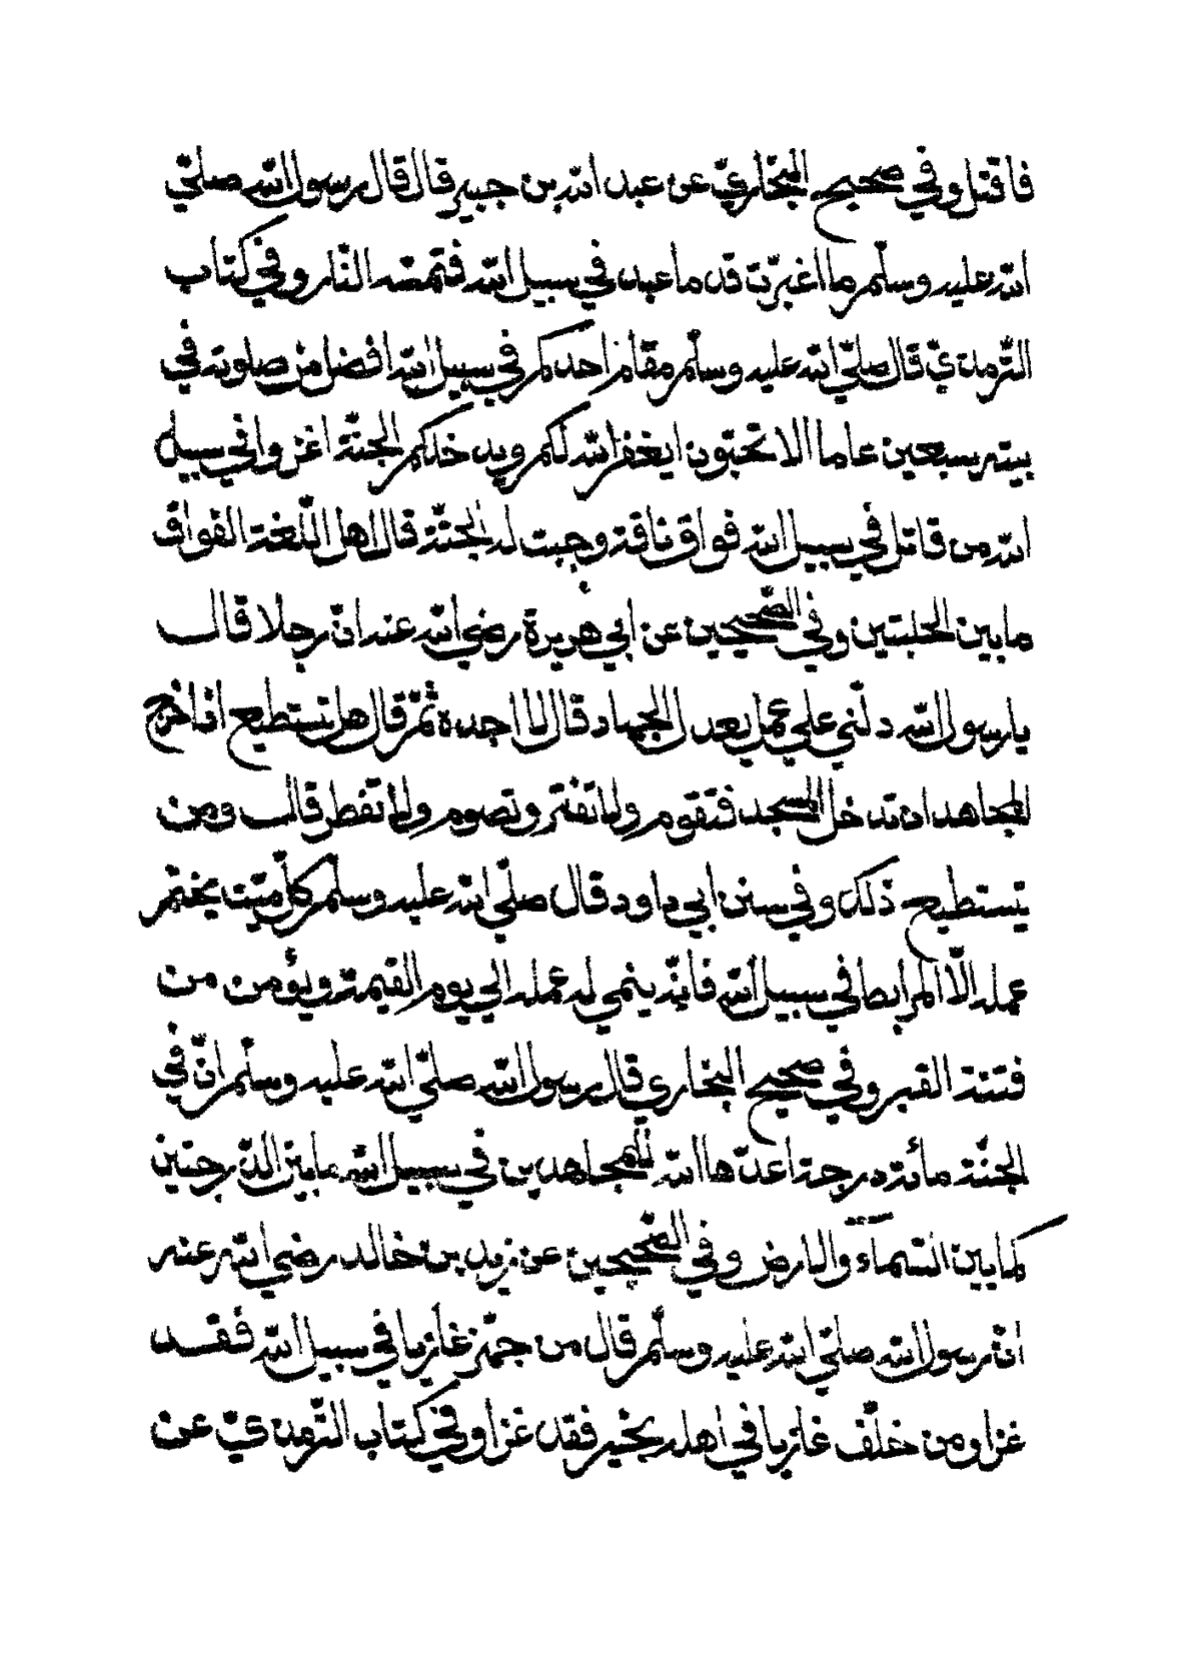 فاقتل وفي صحيح البخاريّ عن عبد الله بن جبير قال قال رسول الله صلّي
الله عليه وسلّم ما اغبرّت قدما عبد في سبيل الله فتمسّه النّار وفي كتاب
التّرمذيّ قال صلّي الله عليه وسلّم مقام احدكم في سبيل الله افضل من صلوته في
بيته سبعين عاما الا تحبّون ان يغفر الله لكم ويدخلكم الجنّة اغزوا في سبيل
الله من قاتل في سبيل الله فواق ناقة وجبت له الجنّة قال اهل اللّغة الفواق
ما بين الحلبتين وفي الصّحيحين عن ابي هريرة رضي الله عنه انّ رجلا قال
يا رسول الله دلّني علي عمل يعدل الجهاد قال لا اجده ثمّ قال هل تستطيع اذا خرج
المجاهد ان تدخل المسجد فتقوم ولا تفتر وتصوم ولا تفطر قال ومن
يستطيع ذلك وفي سنن ابي داود قال صلّي الله عليه وسلّم كلّ ميّت يختم
عمله الّا المرابط في سبيل الله فانّه ينمي له عمله الي يوم القيمة ويؤمن من
فتنة القبر وفي صحيح البخاري قال رسول الله صلّي الله عليه وسلّم انّ في
الجنّة مائة درجة اعدّها الله للمجاهدين في سبيل الله ما بين الدّرجتين
كما بين السّماء والارض وفي الصّحيحين عن زيد بن خالد رضي الله عنه
انّ رسول الله صلّي الله عليه وسلّم قال من جهّز غازيا في سبيل الله فقد
غزا ومن خلّف غازيا في اهله بخير فقد غزا وفي كتاب التّرمذيّ عن